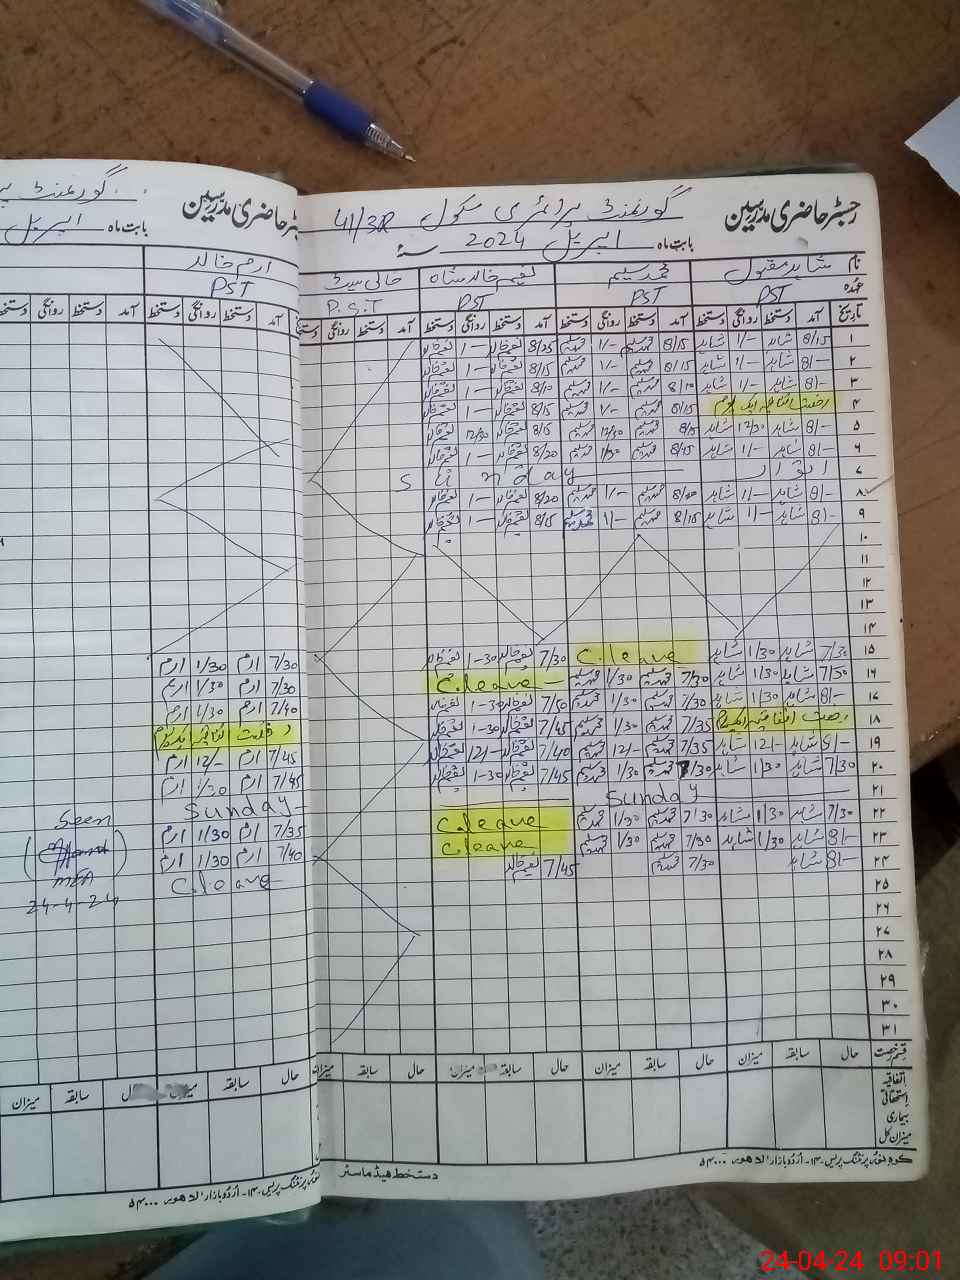 رجسٹر حاضری مدرسین گورنمنٹ پرائمری سکول 41/3R
بابت ماہ اپریل 2024 سنۂ
نام شاہد مقبول محمد سلیم نعیم خالد شاہ خالی سیٹ
عہدہ PST PST PST P.S.T
تاریخ آمد دستخط روانگی دستخط آمد دستخط روانگی دستخط آمد دستخط روانگی دستخط آمد دستخط
۱ 8/15 شاہد 1/- شاہد 8/15 محمد سلیم 1/- محمد سلیم 8/25 نعیم خالد 1- نعیم خالد
۲ 8/- شاہد 1/- شاہد 8/15 محمد سلیم 1/- محمد سلیم 8/15 نعیم خالد 1- نعیم خالد
۳ 8/- شاہد 1/- شاہد 8/10 محمد سلیم 1/- محمد سلیم 8/10 نعیم خالد 1- نعیم خالد
۴ رخصت اتفاقیہ ایک یوم 8/15 محمد سلیم 1/- محمد سلیم 8/15 نعیم خالد 1- نعیم خالد
۵ 8/- شاہد 12/30 شاہد 8/15 محمد سلیم 12/30 محمد سلیم 8/15 نعیم خالد 12/30 نعیم خالد
۶ 8/- شاہد 1/- شاہد 8/15 محمد سلیم 1/30 محمد سلیم 8/20 نعیم خالد 1- نعیم خالد
۷ اتوار Sunday
۸ 8/- شاہد 1/- شاہد محمد سلیم 1/- محمد سلیم 8/20 نعیم خالد 1- نعیم خالد
۹ 8/- شاہد 1/- شاہد 8/15 محمد سلیم 1/- محمد سلیم 8/15 نعیم خالد 1- نعیم خالد
۱۰
۱۱
۱۲
۱۳
۱۴
۱۵ 7/30 شاہد 1/30 شاہد C.leave 7/30 نعیم خالد 1-30 نعیم خالد
۱۶ 7/50 شاہد 1/30 شاہد 7/30 محمد سلیم 1/30 محمد سلیم C.leave-
۱۷ 8/- شاہد 1/30 شاہد 7/30 محمد سلیم 1/30 محمد سلیم 7/50 نعیم خالد 1-30 نعیم خالد
۱۸ رخصت اتفاقیہ ایک یوم 7/35 محمد سلیم 1/30 محمد سلیم 7/45 نعیم خالد 1-30 نعیم خالد
۱۹ شاہد 12/- شاہد 7/35 محمد سلیم 12/- محمد سلیم 7/40 نعیم خالد 12/- نعیم خالد
۲۰ 7/30 شاہد 1/30 شاہد 7/30 محمد سلیم 1/30 محمد سلیم 7/45 نعیم خالد 1-30 نعیم خالد
۲۱ Sunday
۲۲ 7/30 شاہد 1/30 شاہد 7/30 محمد سلیم 1/30 محمد سلیم C.leave
۲۳ 8/- شاہد 1/30 شاہد 7/30 محمد سلیم 1/30 محمد سلیم C.leave
۲۴ 8/- شاہد 7/30 محمد سلیم 7/45 نعیم خالد
۲۵
۲۶
۲۷
۲۸
۲۹
۳۰
۳۱
قسم رخصت حال سابقہ میزان حال سابقہ میزان حال سابقہ میزان حال سابقہ میزان
اتفاقیہ
استحقاقی
بیماری
میزان کل
دستخط ہیڈ ماسٹر
کوہ نور پرنٹنگ پریس ۱۳- اُردو بازار لاہور ۵۴۰۰۰
رجسٹر حاضری مدرسین گورنمنٹ
بابت ماہ اپریل
ارم خالد
PST
آمد دستخط روانگی دستخط آمد دستخط روانگی دستخط
7/30 ارم 1/30 ارم
7/30 ارم 1/30 ارم
7/40 ارم 1/30 ارم
رخصت اتفاقیہ ایک یوم
7/45 ارم 12/- ارم
7/45 ارم 1/30 ارم
Sunday-
7/35 ارم 1/30 ارم
7/40 ارم 1/30 ارم
C.leave-
Seen
MEA
24-4-24
حال سابقہ میزان حال سابقہ میزان
نور پرنٹنگ پریس ۱۳- اُردو بازار لاہور ۵۴۰۰۰
24-04-24 09:01